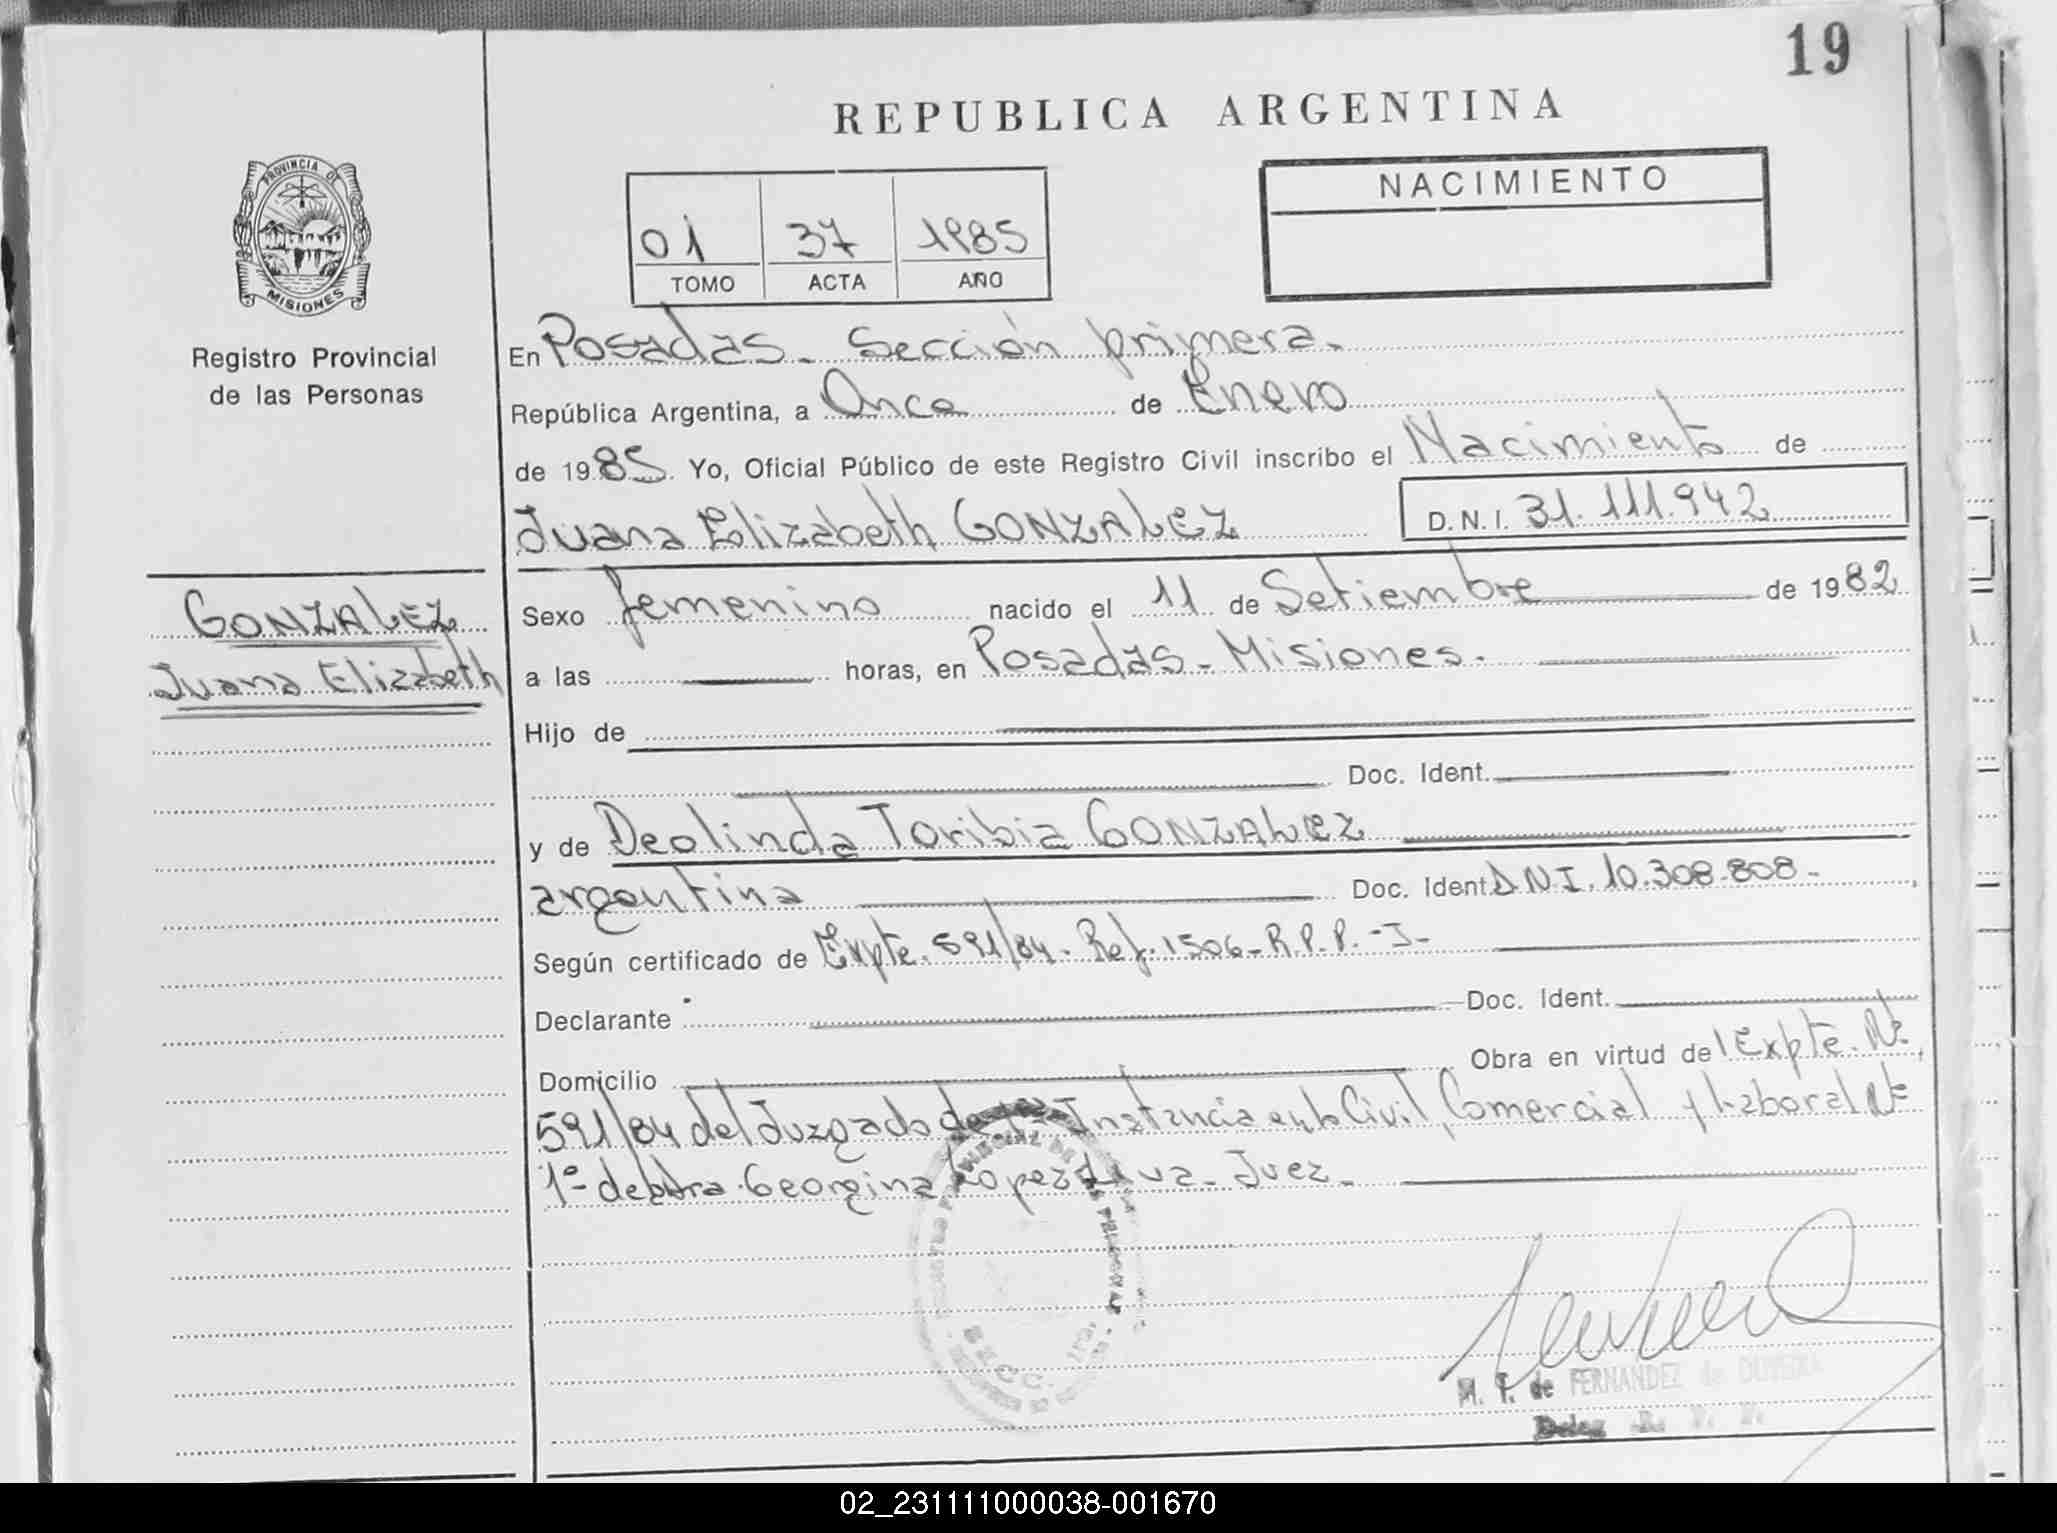 19
REPUBLICA ARGENTINA
PROVINCIA DE
MISIONES
Registro Provincial
de las Personas
NACIMIENTO
01 37 1985
TOMO ACTA AÑO
En Posadas. Sección primera.
República Argentina, a Once de Enero
de 1985. Yo, Oficial Público de este Registro Civil inscribo el Nacimiento de
Juana Elizabeth GONZALEZ D.N.I. 31.111.942
GONZALEZ
Juana Elizabeth
Sexo femenino nacido el 11 de Setiembre de 1982
a las horas, en Posadas - Misiones.
Hijo de
Doc. Ident.
y de Deolinda Toribia GONZALEZ
argentina Doc. Ident. DNI. 10.308.808.-
Según certificado de Expte. 591/84. Ref. 1506-R.P.P.-J-
Declarante Doc. Ident.
Domicilio Obra en virtud del Expte. Nº
591/84 del Juzgado de 1ª Instancia en lo Civil, Comercial y Laboral Nº
1- de Georgina Juez.
SECC. 1ra.
M. T. de FERNANDEZ de OLIVEIRA
Deleg. R. P. P.
02_231111000038-001670